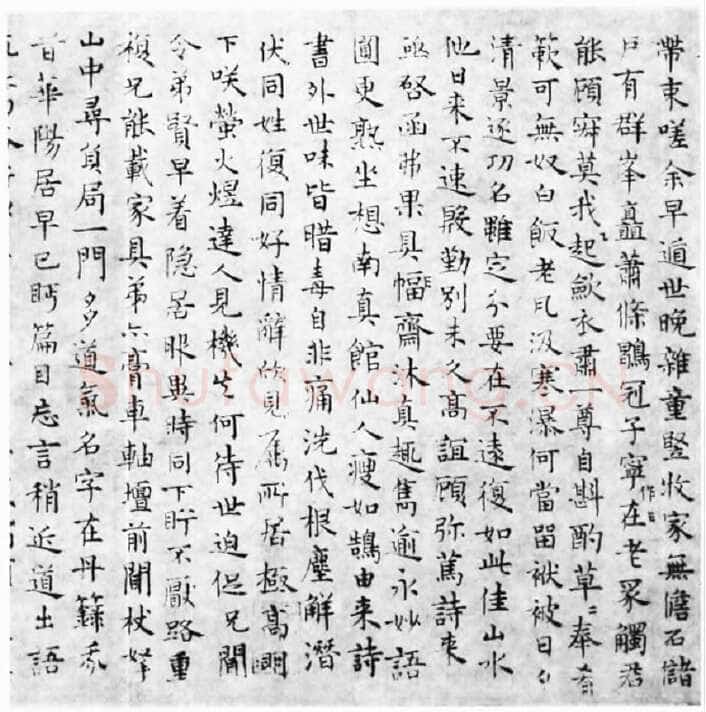 帶束嗟余早遁世晚雜童豎牧家無儋石儲
戶有群峯矗蕭條鶡冠子寧在老眾觸君
能顧寂莫我起歛衣肅一尊自斟酌草〻奉肴
蔌可無奴白飯老瓦汲寒瀑何當留袱被日夕
清景逐功名雖定分要在不遠復如此佳山水
他日来不速殷勤別未久高誼顧弥篤詩来
亟啓函弗果具幅齋沐真趣雋逾永妙語
圓更熟坐想南真館仙人瘦如鵠由来詩
書外世味皆腊毒自非痛洗伐根塵解潛
伏同姓復同好情辭見所居極高明
下咲螢火煜達人見機先何待世迫促兄聞
令弟賢早着隱居服異時同下貯不厭路重
複兄能載家具弟亦膏車軸壇前聞杖拏
山中尋負局一門多道氣名字在丹籙
首華陽居早已眄篇目忘言稍近道出語
Shufawang.CN